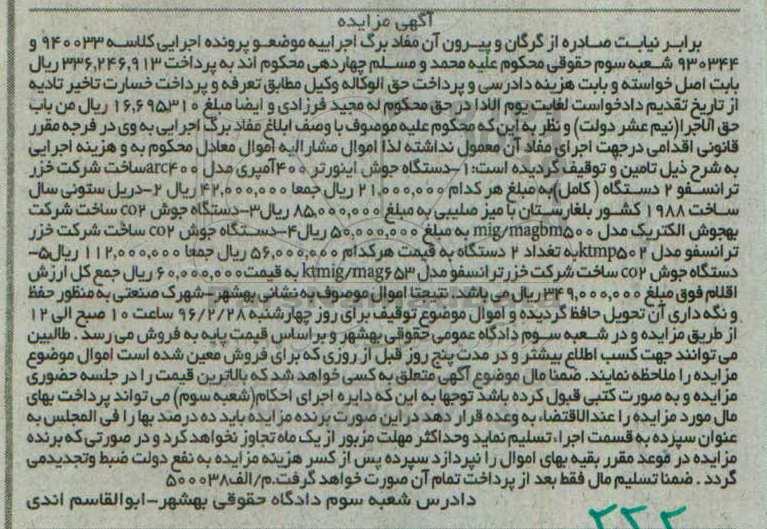 آگهی مزایده
برابر نیابت صادره از گرگان و پیرون آن مفاد برگ اجراییه موضعو پرونده اجرایی کلاسه ۹۴۰۰۳۳ و
۹۳۰۳۴۴ شعبه سوم حقوقی محکوم علیه محمد و مسلم چهاردهی محکوم اند به پرداخت ۳۳۶,۲۴۶,۹۱۳ ریال
بابت اصل خواسته و بابت هزینه دادرسی و پرداخت حق الوکاله وکیل مطابق تعرفه و پرداخت خسارت تاخیر تادیه
از تاریخ تقدیم دادخواست لغایت یوم الادا در حق محکوم له مجید فرزادی و ایضا مبلغ ۱۶,۶۹۵۳۱۰ ریال من باب
حق الاجرا(نیم عشر دولت) و نظر به این که محکوم علیه موصوف با وصف ابلاغ مفاد برگ اجرایی به وی در فرجه مقرر
قانونی اقدامی در جهت اجرای مفاد آن معمول نداشته لذا اموال مشارالیه اموال معادل محکوم به و هزینه اجرایی
به شرح ذیل تامین و توقیف گردیده است: ۱-دستگاه جوش اینورتر ۴۰۰آمپری مدل arc۴۰۰ساخت شرکت خزر
ترانسفو ۲ دستگاه (کامل)به مبلغ هر کدام ۲۱,۰۰۰,۰۰۰ ریال جمعا ۴۲,۰۰۰,۰۰۰ ریال ۲-دریل ستونی سال
ساخت ۱۹۸۸ کشور بلغارستان با میز صلیبی به مبلغ ۸۵,۰۰۰,۰۰۰ ریال۳-دستگاه جوش co۲ ساخت شرکت
بهجوش الکتریک مدل mig/magbm۵۰۰ به مبلغ ۵۰,۰۰۰,۰۰۰ ریال۴-دستگاه جوش co۲ ساخت شرکت خزر
ترانسفو مدل ktmp۵۰۲به تعداد ۲ دستگاه به قیمت هرکدام ۵۶,۰۰۰,۰۰۰ ریال جمعا ۱۱۲,۰۰۰,۰۰۰ ریال۵-
دستگاه جوش co۲ ساخت شرکت خزرترانسفو مدل ktmig/mag۶۵۳ به قیمت۶۰,۰۰۰,۰۰۰ ریال جمع کل ارزش
اقلام فوق مبلغ ۳۴۹,۰۰۰,۰۰۰ ریال می باشد. نتیجتا اموال موصوف به نشانی بهشهر-شهرک صنعتی به منظور حفظ
و نگه داری آن تحویل حافظ گردیده و اموال موضوع توقیف برای روز چهارشنبه ۹۶/۲/۲۸ ساعت ۱۰ صبح الی ۱۲
از طریق مزایده و در شعبه سوم دادگاه عمومی حقوقی بهشهر و براساس قیمت پایه به فروش می رسد. طالبین
می توانند جهت کسب اطلاع بیشتر و در مدت پنج روز قبل از روزی که برای فروش معین شده است اموال موضوع
مزایده را ملاحظه نمایند. ضمنا مال موضوع آگهی متعلق به کسی خواهد شد که بالاترین قیمت را در جلسه حضوری
مزایده و به صورت کتبی قبول کرده باشد توجها به این که دایره اجرای احکام(شعبه سوم) می تواند پرداخت بهای
مال مورد مزایده را عندالاقتضاء به وعده قرار دهد در این صورت برنده مزایده باید ده درصد بها را فی المجلس به
عنوان سپرده به قسمت اجراء تسلیم نماید وحداکثر مهلت مزبور از یک ماه تجاوز نخواهد کرد و در صورتی که برنده
مزایده در موعد مقرر بقیه بهای اموال را نپردازد سپرده پس از کسر هزینه مزایده به نفع دولت ضبط وتجدیدمی
گردد. ضمنا تسلیم مال فقط بعد از پرداخت تمام آن صورت خواهد گرفت.م/الف۵۰۰۰۳۸
دادرس شعبه سوم دادگاه حقوقی بهشهر-ابوالقاسم اندی